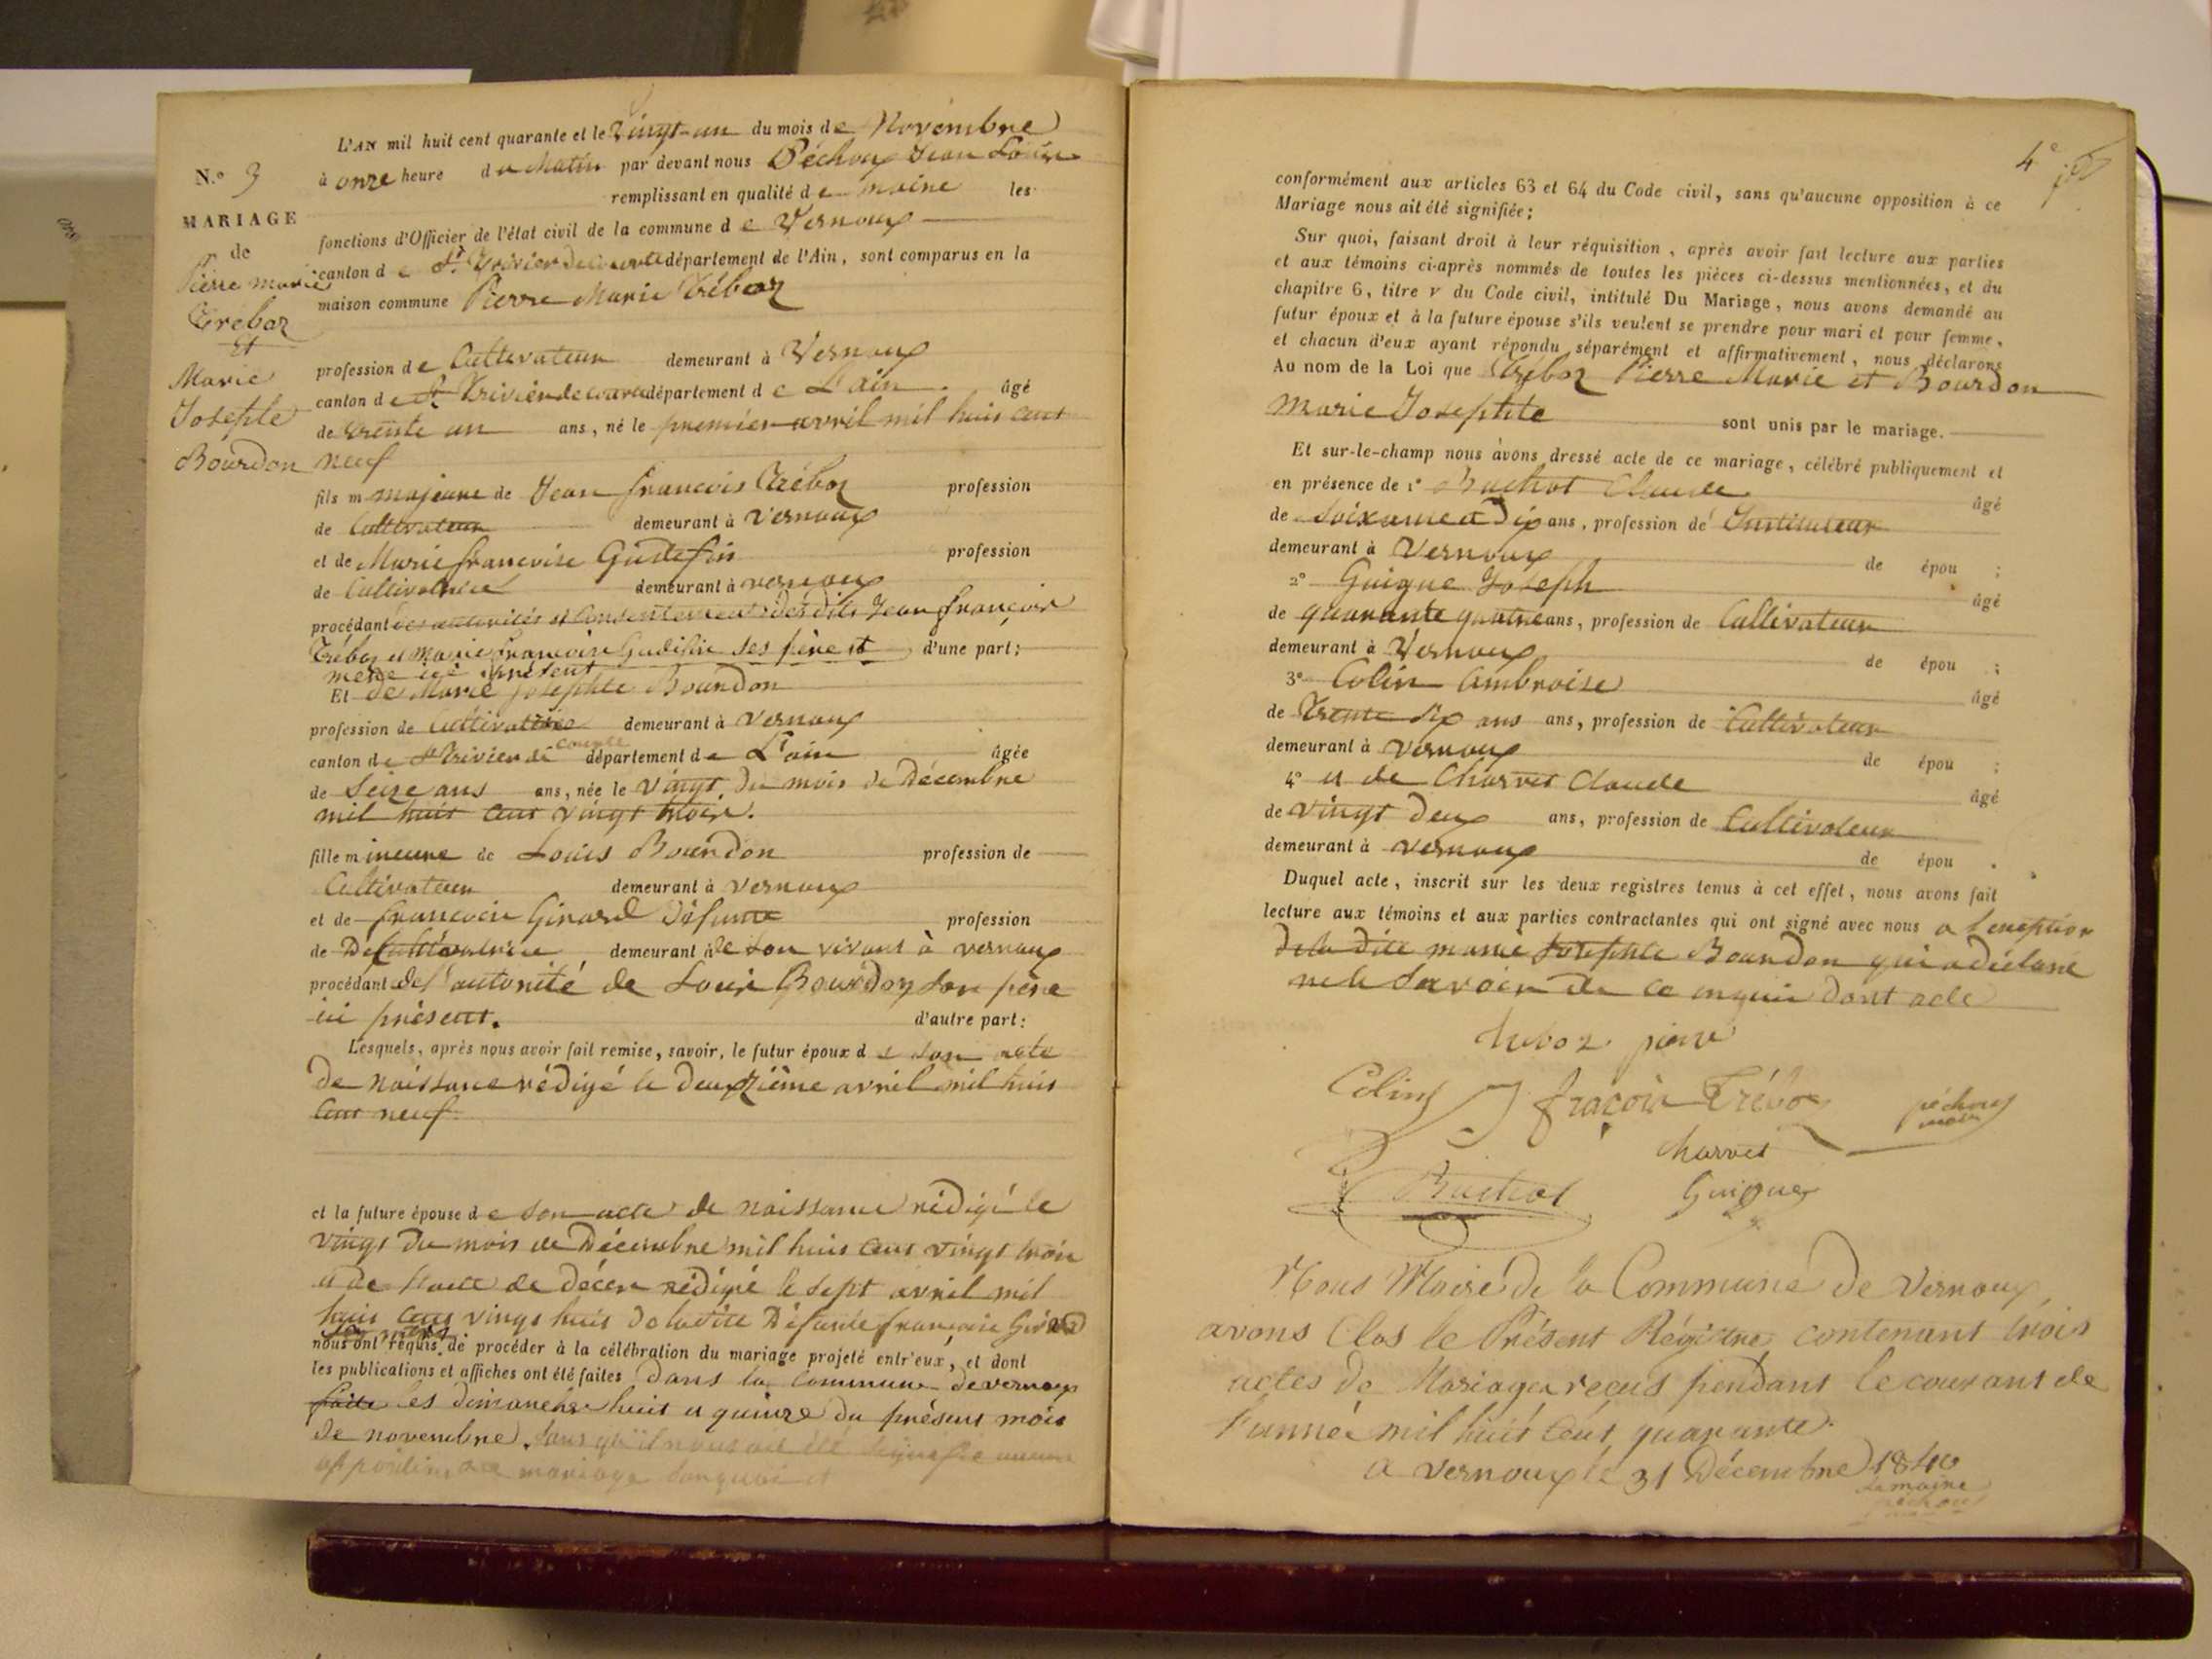 N.° 3
MARIAGE
de
Pierre marie
Treboz
Et
Marie
Josephte
Bourdon
L'AN mil huit cent quarante et le Vingt-un du mois de Novembre
à onze heure du Matin par devant nous Péchoux Jean Louis
remplissant en qualité de maire les
fonctions d'Officier de l'état civil de la commune de Vernoux
canton de St. Trivier de courtes département de l'Ain, sont comparus en la
maison commune Pierre Marie Tréboz
profession de Cultivateur demeurant à Vernoux
canton de St Trivier de courtes département de L'ain âgé
de trente un ans, né le premier avril mil huit cent
neuf
fils m majeure de Jean françois Tréboz profession
de Cultivateur demeurant à Vernoux
et de Marie françoise Gudefin profession
de Cultivatrice demeurant à vernoux
procédant des autorités et Consentement des dits Jean françois
Tréboz et marie françoise Gudefin ses père et d'une part;
mère ici présent
Et de Marie josephte Bourdon
profession de Cultivatrice demeurant à Vernoux
canton de St Trivier de courte département de L'ain âgée
de Seize ans ans, née le vingt du mois de Décembre
mil huit cent vingt trois.
fille mineure de Louis Bourdon profession de
Cultivateur demeurant à vernoux
et de françoise Girard Défunte profession
de De Cultivatrice demeurant à de son vivant à vernoux
procédant de l'autorité de Louis Bourdon son père
ici présent. d'autre part:
Lesquels, après nous avoir fait remise, savoir, le futur époux de son acte
de naissance rédigé le deuxzième avril mil huit
Cent neuf
et la future épouse de son acte de naissance rédigé le
vingt du mois de Décembre mil huit cent vingt trois
et de l'acte de décès rédigé le sept avril mil
huit cent vingt huit de la dite Défunte françoise Girard
sa mère
nous ont requis de procéder à la célébration du mariage projeté entr'eux, et dont
les publications et affiches ont été faites dans la commune de vernoux
faite les dimanche huit et quinze du présent mois
de novembre. sans qu'il nous ait été signifié aucune
opposition a ce mariage
4e
conformément aux articles 63 et 64 du Code civil, sans qu'aucune opposition à ce
Mariage nous ait été signifiée;
Sur quoi, faisant droit à leur réquisition, après avoir fait lecture aux parties
et aux témoins ci-après nommés de toutes les pièces ci-dessus mentionnées, et du
chapitre 6, titre v du Code civil, intitulé Du Mariage, nous avons demandé au
futur époux et à la future épouse s'ils veulent se prendre pour mari et pour femme,
et chacun d'eux ayant répondu séparément et affirmativement, nous déclarons
Au nom de la Loi que Tréboz Pierre Marie et Bourdon
Marie Josephte sont unis par le mariage.
Et sur-le-champ nous avons dressé acte de ce mariage, célébré publiquement et
en présence de 1° Buchot Claude âgé
de soixante et dix ans, profession de Instituteur
demeurant à Vernoux de épou ;
2° Guigue Joseph âgé
de quarante quatre ans, profession de Cultivateur
demeurant à Vernoux de épou ;
3° Colin Ambroise âgé
de Trente six ans ans, profession de Cultivateur
demeurant à Vernoux de épou ;
4° et de Charvet Claude âgé
de vingt deux ans, profession de Cultivateur
demeurant à vernoux de épou .
Duquel acte, inscrit sur les deux registres tenus à cet effet, nous avons fait
lecture aux témoins et aux parties contractantes qui ont signé avec nous a l'exeption
de la dite marie Josephte Bourdon qui a déclaré
ne le savoir de ce enquis dont acte
treboz pierre
Colin J fraçois Tréboz péchoux
maire
Charvet
Buchot Guigue
Nous Maire de la Commune de Vernoux,
avons Clos le Présent Régistre contenant trois
actes de Mariages reçus pendant le courant de
l'année mil huit cent quarante.
a vernoux le 31 Décembre 1840
Le maire
péchoux